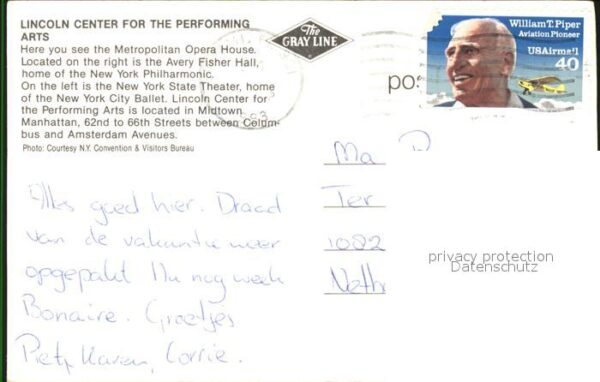 LINCOLN CENTER FOR THE PERFORMING
ARTS
Here you see the Metropolitan Opera House.
Located on the right is the Avery Fisher Hall,
home of the New York Philharmonic.
On the left is the New York State Theater, home
of the New York City Ballet. Lincoln Center for
the Performing Arts is located in Midtown
Manhattan, 62nd to 66th Streets between Colum-
bus and Amsterdam Avenues.
Photo: Courtesy N.Y. Convention & Visitors Bureau
The
GRAY LINE
William T. Piper
Aviation Pioneer
USAirmail
40
pos
Alles goed hier. Draad
van de vakantie weer
opgepakt Nu nog week
Bonaire. Groetjes
Piet, Karen, Corrie.
Ma
Ter
1082
Neth
privacy protection
Datenschutz